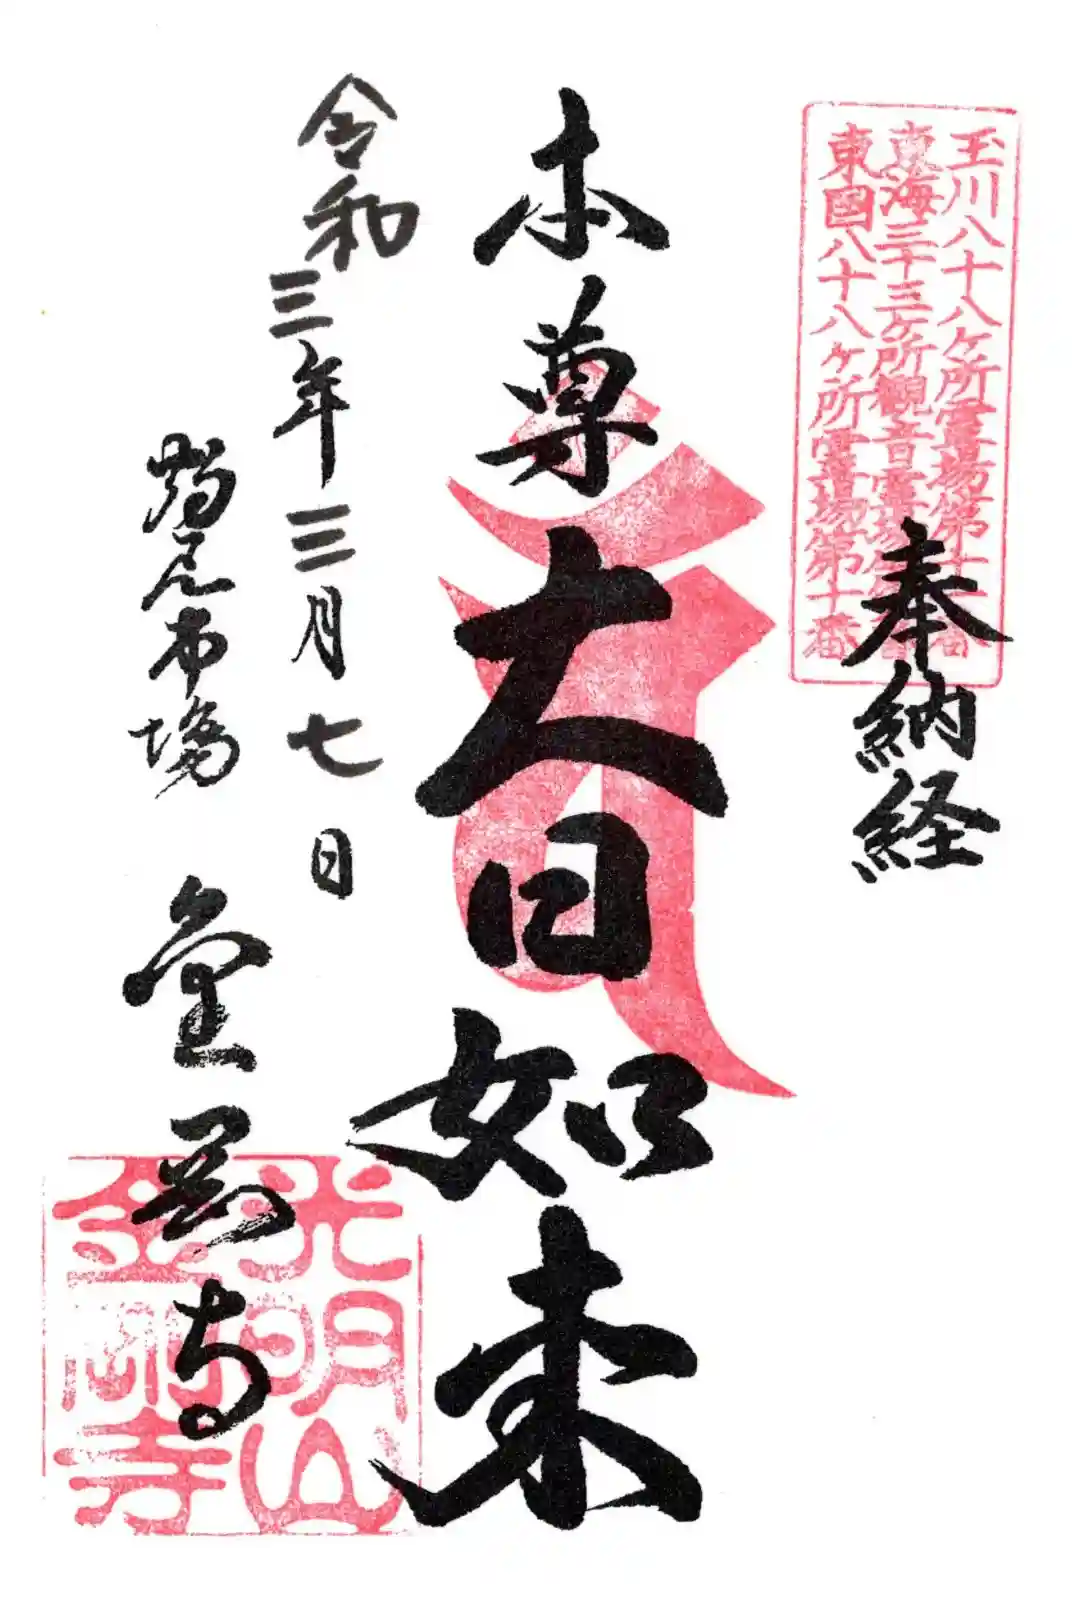 玉川八十八ヶ所霊場第十 番
東海三十三ヶ所観音霊場
東國八十八ヶ所霊場第十番
奉納経
本尊大日如来
令和三年三月七日
鶴見市場
金剛寺
光明山
金剛寺